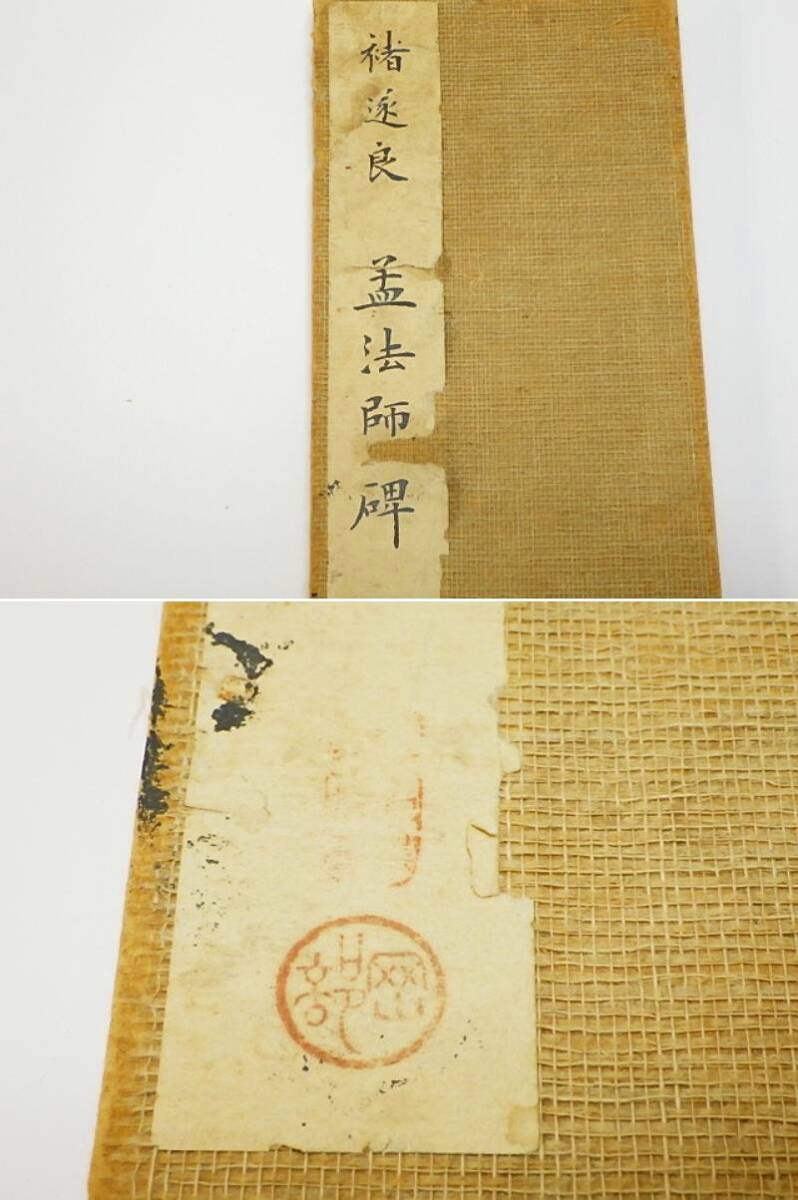 褚遂良 孟法師碑